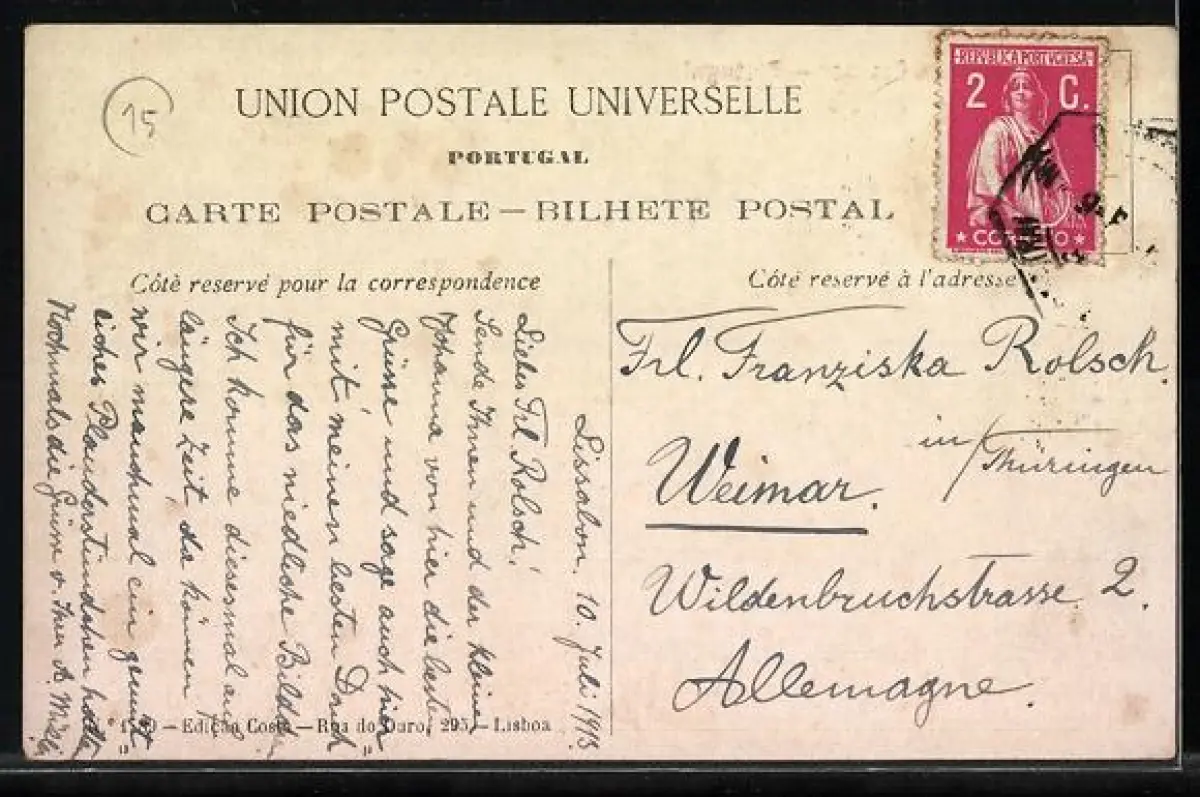 15
UNION POSTALE UNIVERSELLE
PORTUGAL
CARTE POSTALE — BILHETE POSTAL
REPUBLICA PORTUGUESA
2 C.
CORREIO
Côté reservé pour la correspondence
Côté reservé à l'adresse
Lissabon. 10. Juli 1913
Liebes Frl. Rolsch!
Sende Ihnen und der kleinen
Johanna von hier die besten
Grüsse und sage auch hier
mit meinen besten Dank
für das niedliche Bildchen
Ich komme diesesmal auf
längere Zeit, da können
wir manchmal ein gemüt
liches Plauderstündchen
Nochmals die Grüsse v. Ihrer A.
Frl. Franziska Rolsch.
Weimar.
in/Thüringen
Wildenbruchstrasse 2.
Allemagne.
— Edição Costa — Rua do Ouro, 295, — Lisboa